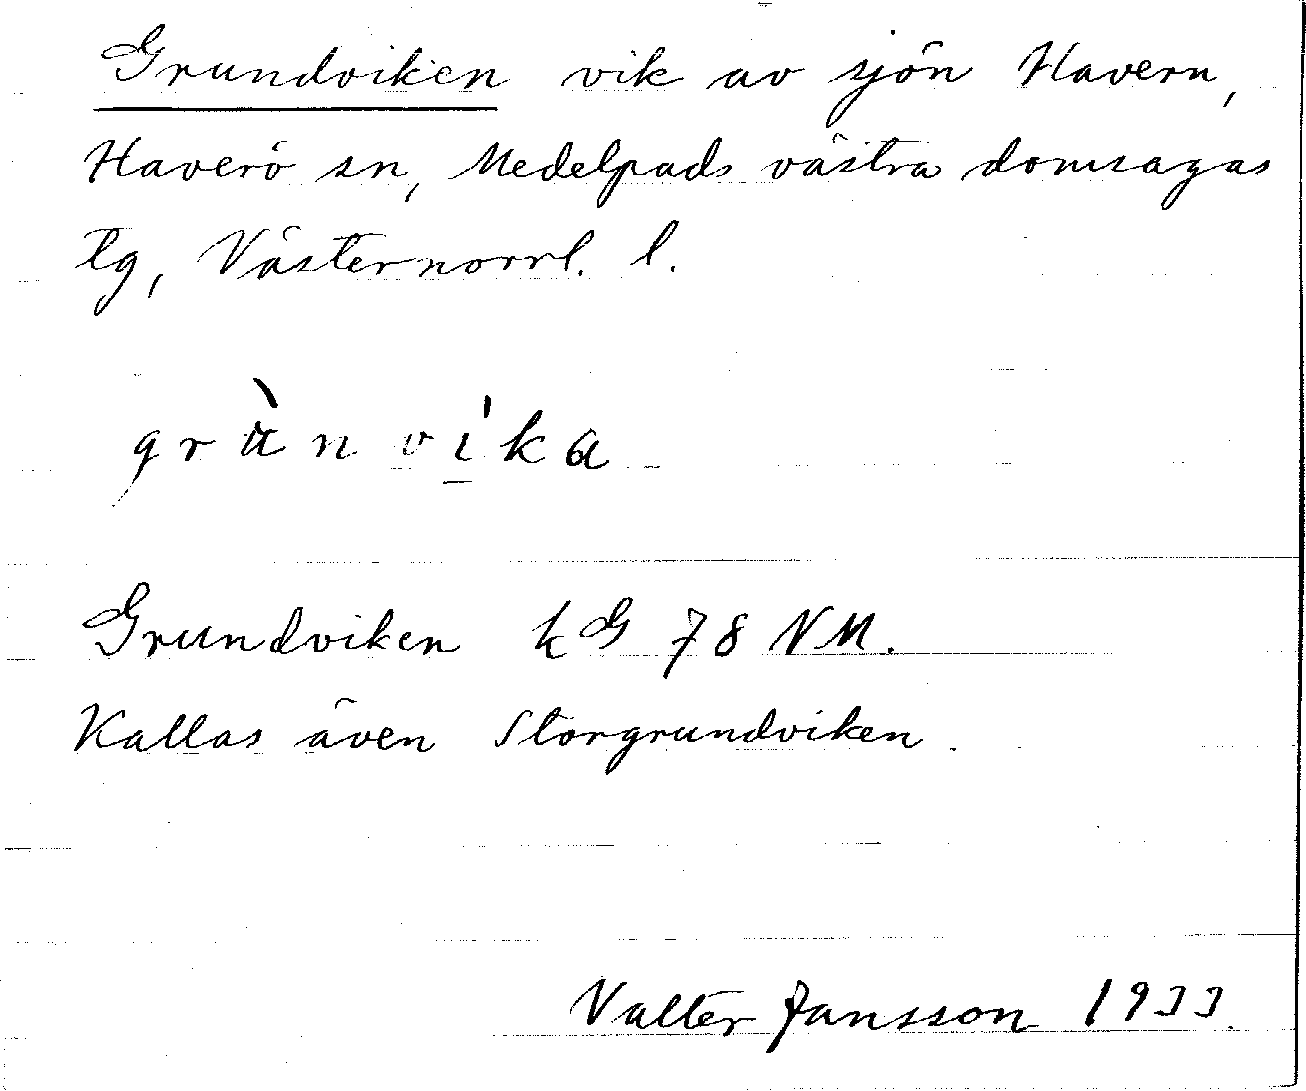 Grundviken vik av sjön Havern,
Haverö sn, Medelpads västra domsagas
tg, Västernorrl. l.
grùnvi̱̍ka
Grundviken kG 78 NM.
Kallas även Storgrundviken.
Valter Jansson 1933.